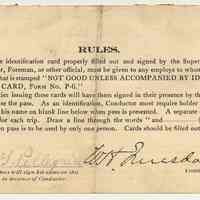 RULES.
e identification card properly filled out and signed by the Super
r, Foreman, or other official, must be given to any employe to whom
that is stamped "NOT GOOD UNLESS ACCOMPANIED BY ID
CARD, FORM NO. P-6."
ties issuing these cards will have them signed in their presence by th
se the pass. As an identification, Conductor must require holder
his name on blank line below when pass is presented. A separate
for each trip. Draw a line through the words "and
n pass is to be used by only one person. Cards should be filled out
W H
ees will sign his name on this
in presence of Conductor.